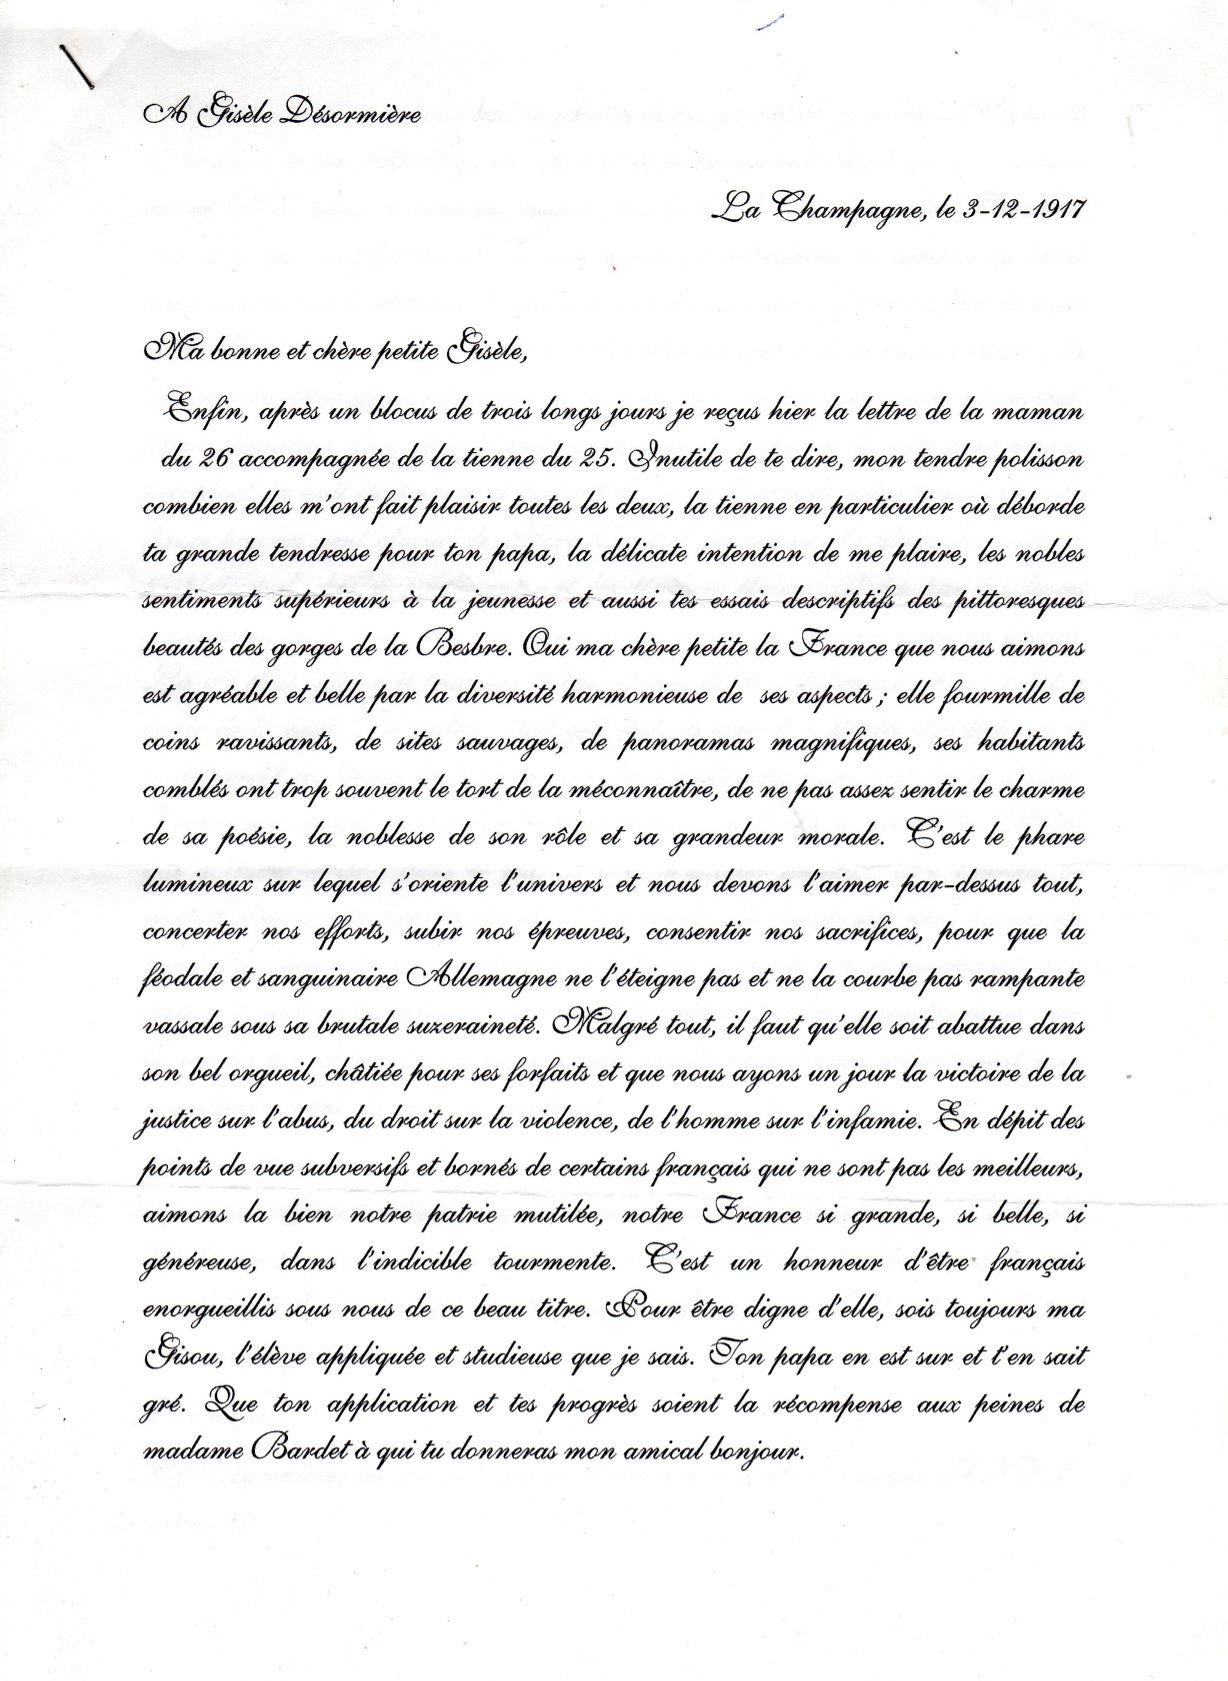 A Gisèle Désormière
La Champagne, le 3-12-1917
Ma bonne et chère petite Gisèle,
Enfin, après un blocus de trois longs jours je reçus hier la lettre de la maman
du 26 accompagnée de la tienne du 25. Inutile de te dire, mon tendre polisson
combien elles m'ont fait plaisir toutes les deux, la tienne en particulier où déborde
ta grande tendresse pour ton papa, la délicate intention de me plaire, les nobles
sentiments supérieurs à la jeunesse et aussi tes essais descriptifs des pittoresques
beautés des gorges de la Besbre. Oui ma chère petite la France que nous aimons
est agréable et belle par la diversité harmonieuse de ses aspects ; elle fourmille de
coins ravissants, de sites sauvages, de panoramas magnifiques, ses habitants
comblés ont trop souvent le tort de la méconnaître, de ne pas assez sentir le charme
de sa poésie, la noblesse de son rôle et sa grandeur morale. C'est le phare
lumineux sur lequel s'oriente l'univers et nous devons l'aimer par-dessus tout,
concerter nos efforts, subir nos épreuves, consentir nos sacrifices, pour que la
féodale et sanguinaire Allemagne ne l'éteigne pas et ne la courbe pas rampante
vassale sous sa brutale suzeraineté. Malgré tout, il faut qu'elle soit abattue dans
son bel orgueil, châtiée pour ses forfaits et que nous ayons un jour la victoire de la
justice sur l'abus, du droit sur la violence, de l'homme sur l'infamie. En dépit des
points de vue subversifs et bornés de certains français qui ne sont pas les meilleurs,
aimons la bien notre patrie mutilée, notre France si grande, si belle, si
généreuse, dans l'indicible tourmente. C'est un honneur d'être français
enorgueillis sous nous de ce beau titre. Pour être digne d'elle, sois toujours ma
Gisou, l'élève appliquée et studieuse que je sais. Ton papa en est sur et t'en sait
gré. Que ton application et tes progrès soient la récompense aux peines de
madame Bardet à qui tu donneras mon amical bonjour.